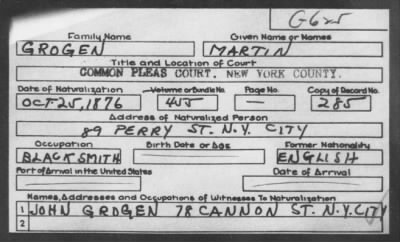 G625
Family Name Given Name or Names
GROGEN MARTIN
Title and Location of Court
COMMON PLEAS COURT. NEW YORK COUNTY.
Date of Naturalization Volume or Bundle No. Page No. Copy of Record No.
OCT-25, 1876 455 — 285
Address of Naturalized Person
89 PERRY ST. N.Y. CITY
Occupation Birth Date or Age Former Nationality
BLACKSMITH ENGLISH
Port of Arrival in the United States Date of Arrival
Names, Addresses and Occupations of Witnesses To Naturalization
1 JOHN GROGEN 78 CANNON ST. N.Y. CITY
2